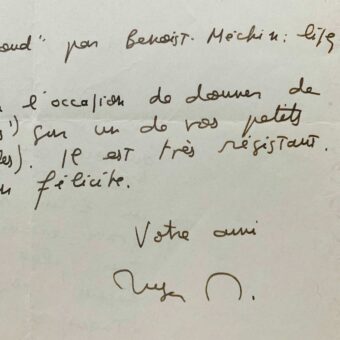 ound" par Benoist-Méchin: lisez
l'occasion de donner de
s") sur un de vos petits
les). Il est très résistant.
félicite.
Votre ami